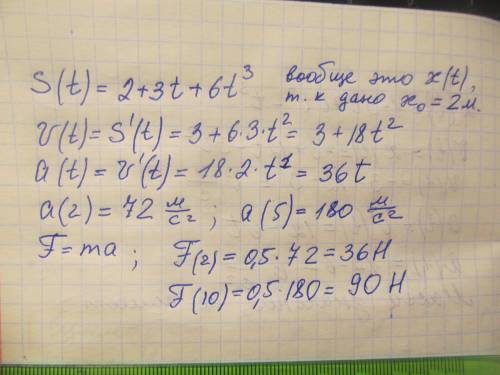 S(t) = 2+3t+6t³ вообще это x(t),
т.к дано x₀=2м.
V(t)=S'(t)=3+6·3·t²=3+18t²
a(t)=v'(t)=18·2·t¹=36t
a(2)=72 м/с²; a(5)=180 м/с²
F=ma; F(2)=0,5·72=36H
F(10)=0,5·180=90H